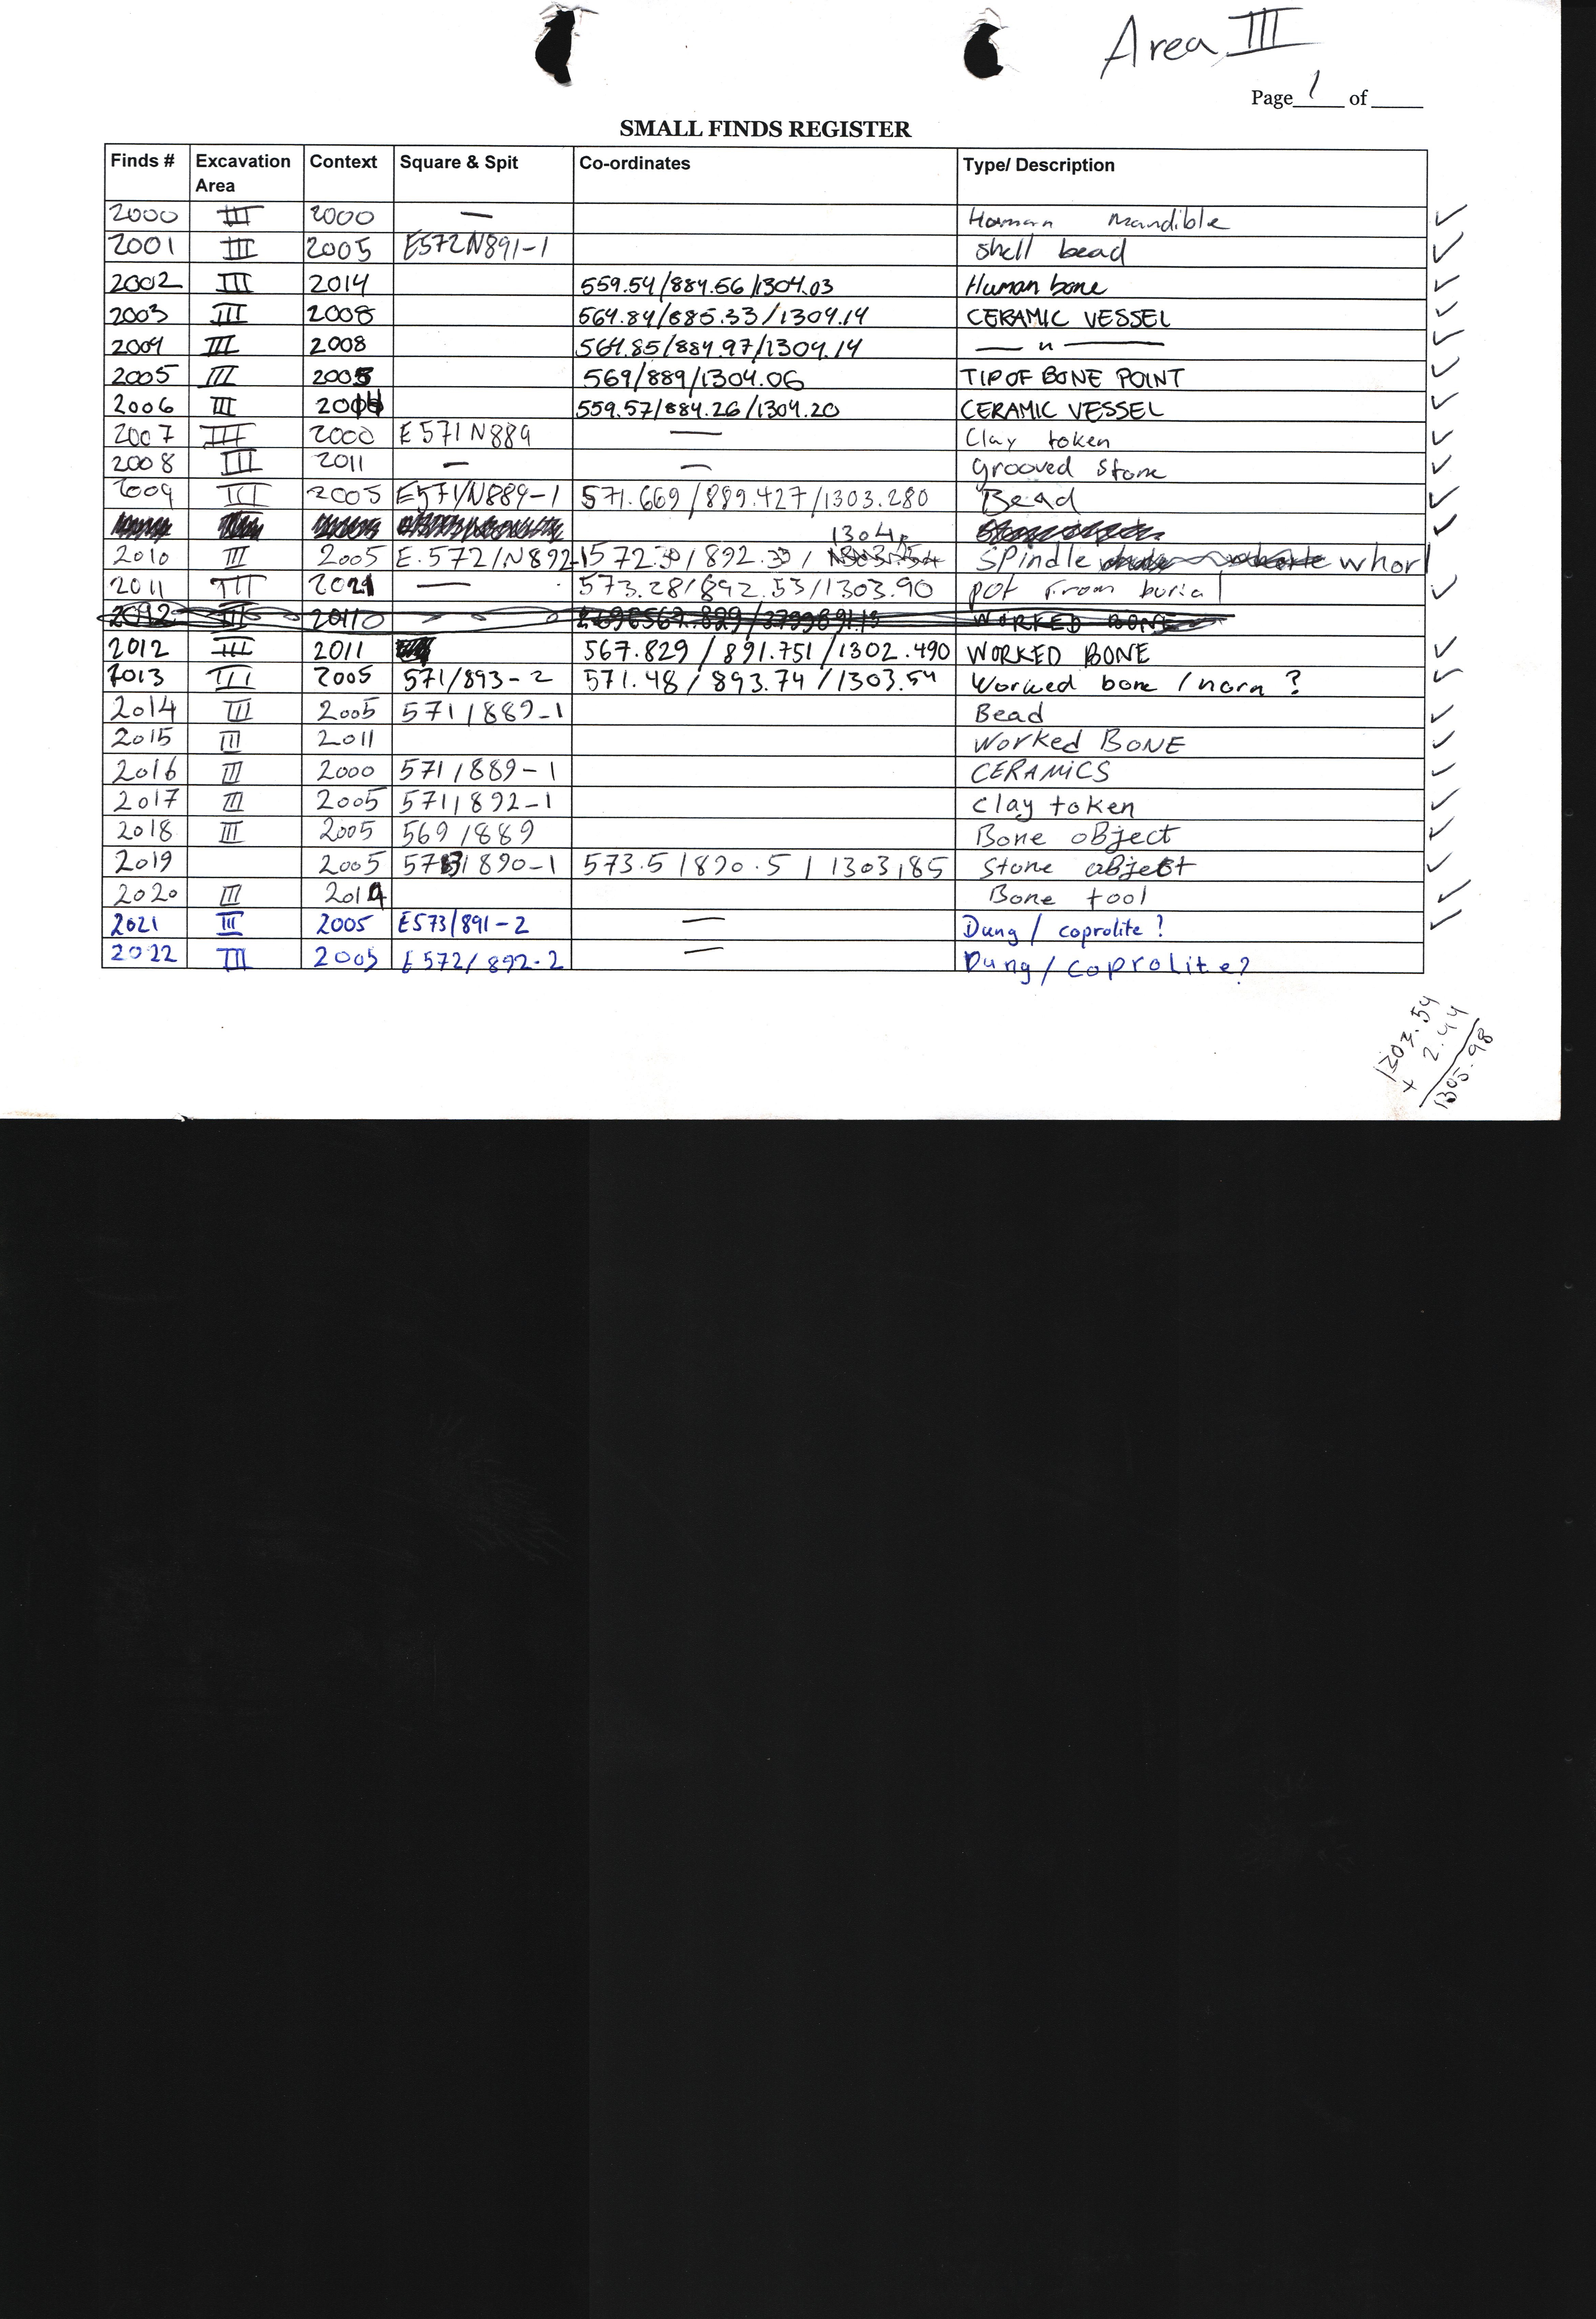 Area III
Page 1 of
SMALL FINDS REGISTER
Finds # Excavation Area Context Square & Spit Co-ordinates Type/ Description
2000 III 2000 — Human mandible ✓
2001 III 2005 E572N891-1 shell bead ✓
2002 III 2014 559.54/884.56/1304.03 Human bone ✓
2003 III 2008 564.84/885.33/1304.14 CERAMIC VESSEL ✓
2004 III 2008 564.85/884.97/1304.14 — " — ✓
2005 III 2005 569/889/1304.06 TIP OF BONE POINT ✓
2006 III 559.57/884.26/1304.20 CERAMIC VESSEL ✓
2007 III 2000 E571N889 — Clay token ✓
2008 III 2011 — — grooved stone ✓
2009 III 2005 E571/N889-1 571.669/889.427/1303.280 Bead ✓
✓
1304
2010 III 2005 E.572/N892-1 572.30/892.33/ Spindle whorl
2011 III 2021 — 573.28/892.53/1303.90 pot from burial ✓
2012 III 20110 WORKED BONE
2012 III 2011 567.829/891.751/1302.490 WORKED BONE ✓
2013 III 2005 571/893-2 571.48/893.74/1303.54 Worked bone/horn? ✓
2014 III 2005 571/889-1 Bead ✓
2015 III 2011 Worked BONE ✓
2016 III 2000 571/889-1 CERAMICS ✓
2017 III 2005 571/892-1 clay token ✓
2018 III 2005 569/889 Bone object ✓
2019 2005 573/890-1 573.5/890.5/1303,85 Stone object ✓
2020 III 2014 Bone tool ✓
2021 III 2005 E573/891-2 — Dung/coprolite? ✓
2022 III 2005 E572/892-2 — Dung/coprolite?
1303.54
+ 2.44
1305.98